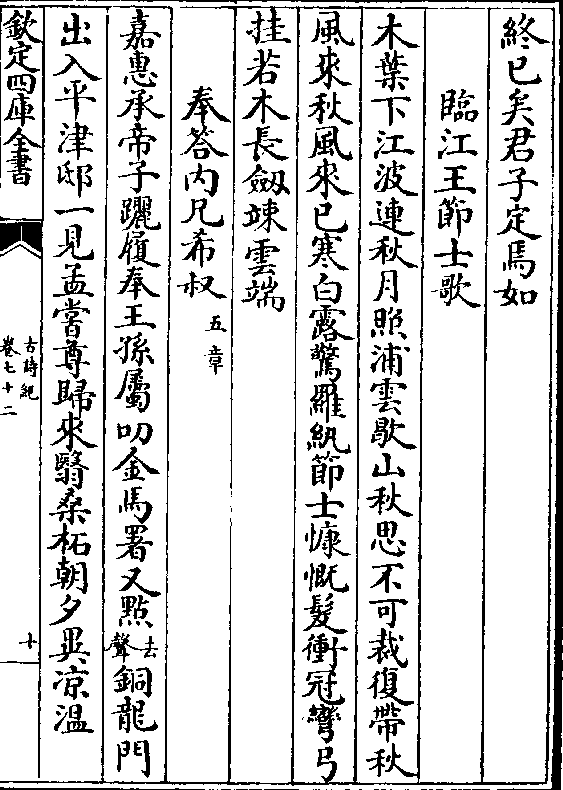 終已矣君子定焉如
臨江王節士歌
木葉下江波連秋月照浦雲歇山秋思不可裁復帶秋
風來秋風來已寒白露驚羅紈節士慷慨髮衝冠彎弓
挂若木長劔竦雲端
奉答内兄希叔五章
嘉惠承帝子躧履奉王孫屬叨金馬署又點去聲銅龍門
出入平津邸一見孟嘗尊歸來翳桑柘朝夕異凉温
欽定四庫全書
古詩紀
卷七十二
十